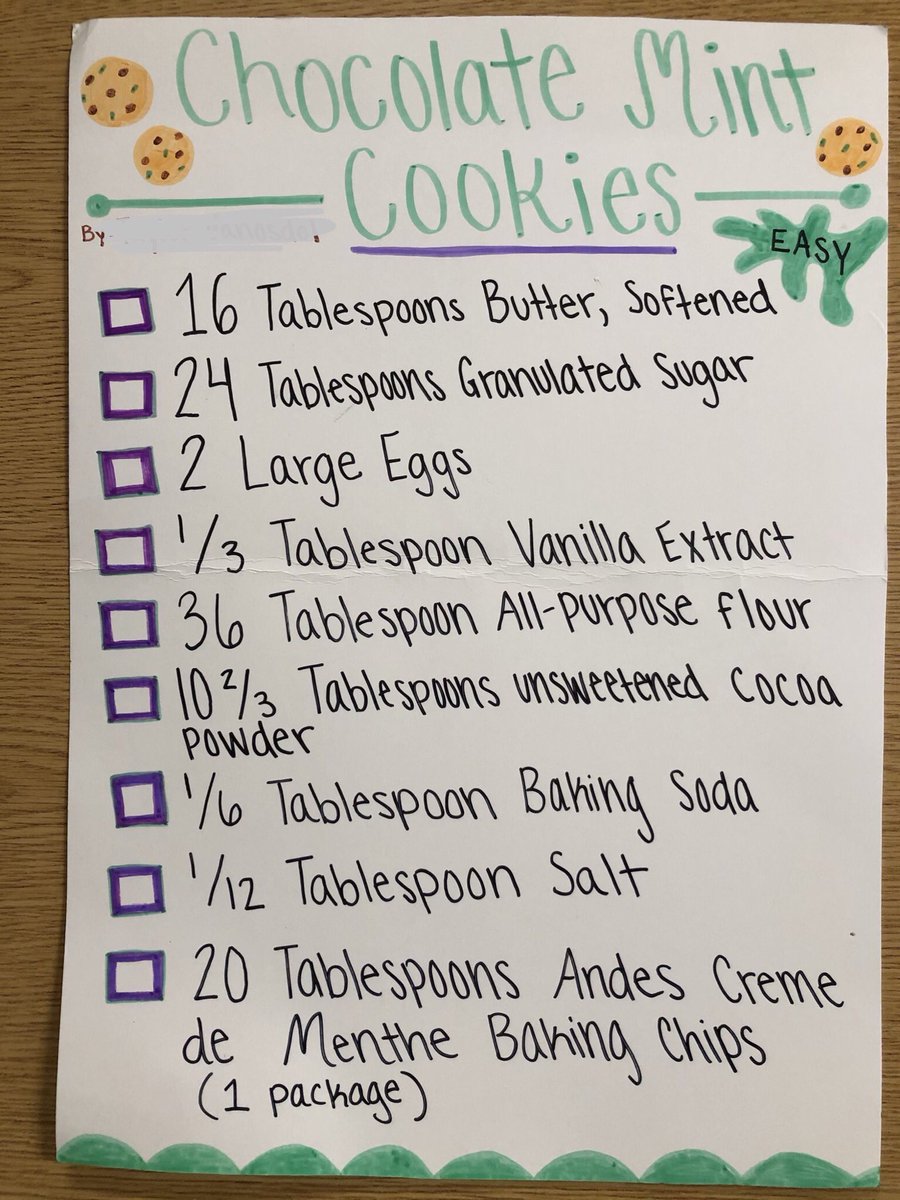 Chocolate Mint
Cookies
By
EASY
16 Tablespoons Butter, Softened
24 Tablespoons Granulated Sugar
2 Large Eggs
1/3 Tablespoon Vanilla Extract
36 Tablespoon All-Purpose flour
10 2/3 Tablespoons unsweetened cocoa
powder
1/6 Tablespoon Baking Soda
1/12 Tablespoon Salt
20 Tablespoons Andes Creme
de Menthe Baking Chips
(1 package)